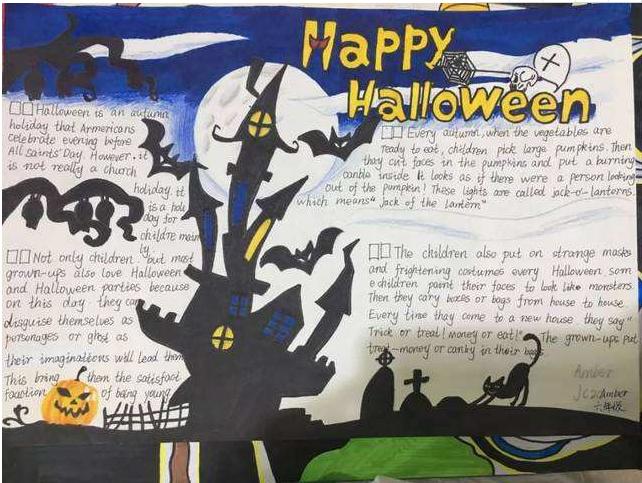 Happy
Halloween
□□Halloween is an autumn
holiday that Armericans
celebrate evening before
All Saints' Day. However. it
is not really a church
holiday. it
is a holi
day for
childre main
ly
□□Not only children. but most
grown-ups also love Halloween
and Halloween parties because
on this day. they can
disguise themselves as
personages or ghost as
their imaginations will lead them
This bring them the satisfact
faaction of being young
□□Every autumn, when the vegetables are
ready to eat, children pick large pumpkins. Then
they cut faces in the pumpkins and put a burning
canble inside. It looks as if there were a person looking
out of the pumpkin! These lights are called jack-o'-lanterns
which means "Jack of the lantern"
□□The children also put on strange masks
and frightening costumes every Halloween. som
e children paint their faces to look like monsters
Then they cary boxes or bags from house to house.
Every time thay come to a new house they say "
Trick or treat! money or eat!" The grown-ups put
treat-money or canby in their bags
Amber
Amber
六年级